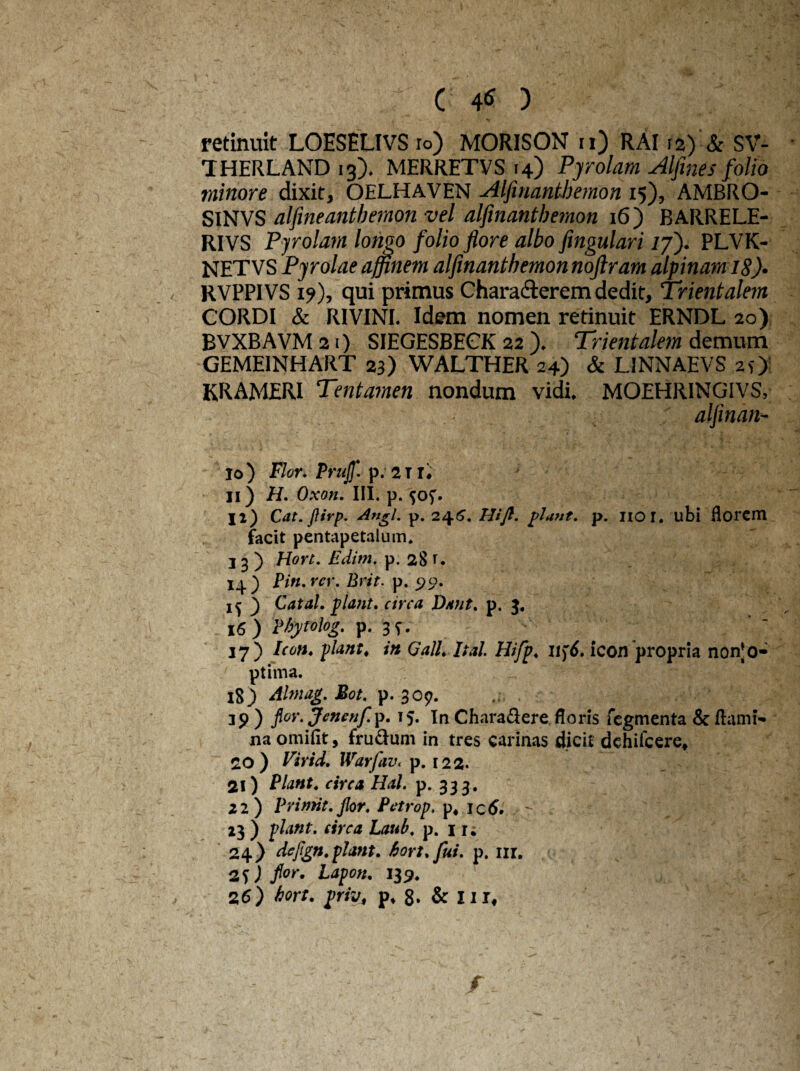 ( 46 )
retinuit LOESELIVS 10) MORISON 11) RAI 12) & SV-
THERLAND 13). MERRETVS 14) Pyrolam Alſines folio
minore dixit, OELHAVEN Alſinanthemon 15), AMBRO-
SINVS alſineanthemon vel alſinanthemon 16) BARRELE-
RIVS Pyrolam longo folio flore albo ſingulari 17). PLVK-
NETVS Pyrolae affinem alſinanthemon noſtram alpinam 18).
RVPPIVS 19), qui primus Characterem dedit, Trientalem
CORDI & RIVINI. Idem nomen retinuit ERNDL 20)
BVXBAVM 21) SIEGESBECK 22 ). Trientalem demum
GEMEINHART 23) WALTHER 24) & LINNAEVS 25)
KRAMERI Tentamen nondum vidi. MOEHRINGIVS,
alſinan-
10) Flor. Pruſſ. p. 211.
11) H. Oxon. III. p. 505.
12) Cat. ſtirp. Angl. p. 246. Hiſt. plant. p. 1101. ubi florem
facit pentapetalum.
13) Hort. Edim. p. 281.
14) Pin. rer. Brit. p. 99.
15) Catal. plant. circa Dant. p. 3.
16) Phytolog. p. 35.
17) Icon. plant. in Gall. Ital. Hiſp. 1156. icon propria non o-
ptima.
18) Almag. Bot. p. 309.
19) flor. Jenenſ. p. 15. In Charactere floris ſegmenta & ſtami-
na omiſit, fructum in tres carinas dicit dehiſcere.
20) Virid. Warſav. p. 122.
21) Plant. circa Hal. p. 333.
22) Primit. flor. Petrop. p. 106.
23) plant. circa Laub. p. 11.
24) deſign. plant. hort. ſui. p. 111.
25) flor. Lapon. 139.
26) hort. priv. p. 8. & 111.